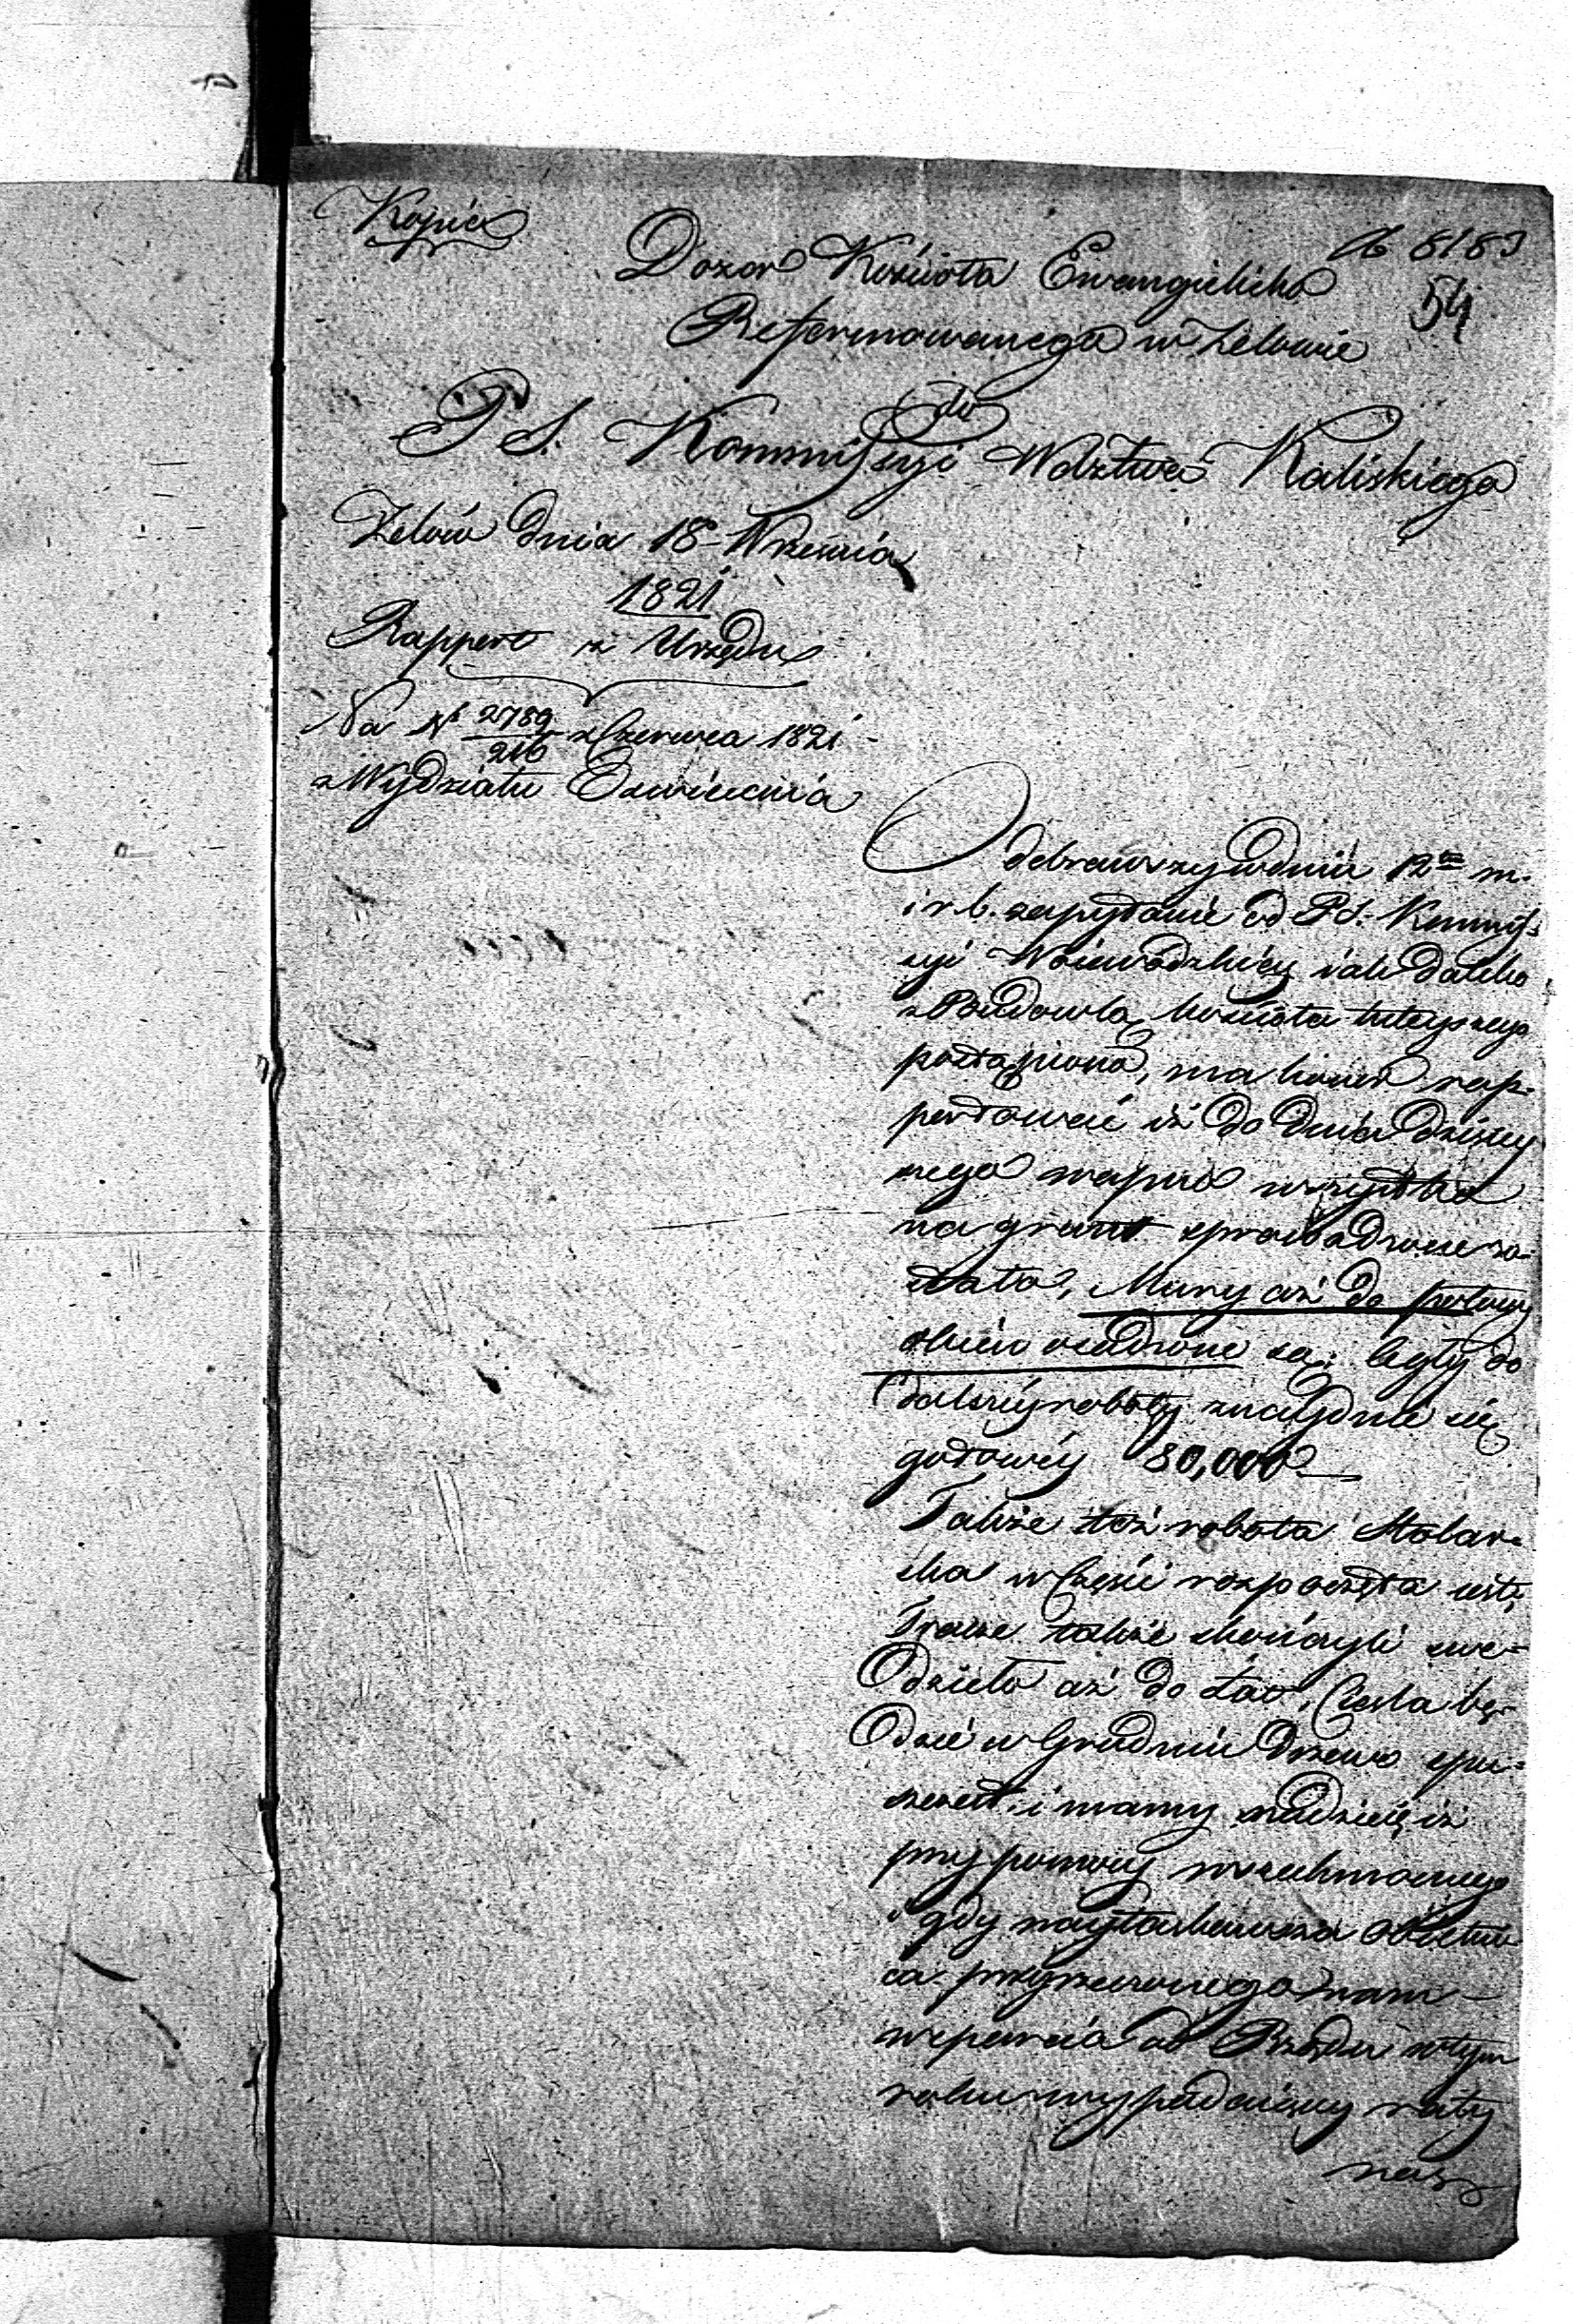 Kopia
№ 8183
54
Dozór Kościoła Ewangielicko
Reformowanego w Zelowie
do
P S. Kommissyi Wdztwa Kaliskiego
Zelów dnia 18 Września
1821
Rapport z Urzędu
Na № 2789/216 z Czerwca 1821
z Wydziału Oswiecenia
Odebrawszy w dniu 12m m.
i r b. zapytanie od P S. Kommis
syi Woiewódzkiey iak daleko
z Budowlą kościoła tuteyszego
postąpiono, ma honor rap-
portować iż do dnia dzisiey
szego wapno wszystko
na grunt sprowadzone zo-
stało, Mury aż do połowy
okien osadzone są; cegły do
dalszéy roboty znayduie się
gotowéy 80,000
Także też robota Stolar-
ska w części rozpoczęta iest,
Tracze także skończyli swe
dzieło aż do łat, Ciesla bę-
dzie w Grudniu drzewo spu-
szczał, i mamy nadzieię iż
przy pomocy wszechmocnego
i gdy nayłaskawsza
przyrzeczonego nam
wsparcia od Rządu w tym
roku wypadaiącey raty
nas